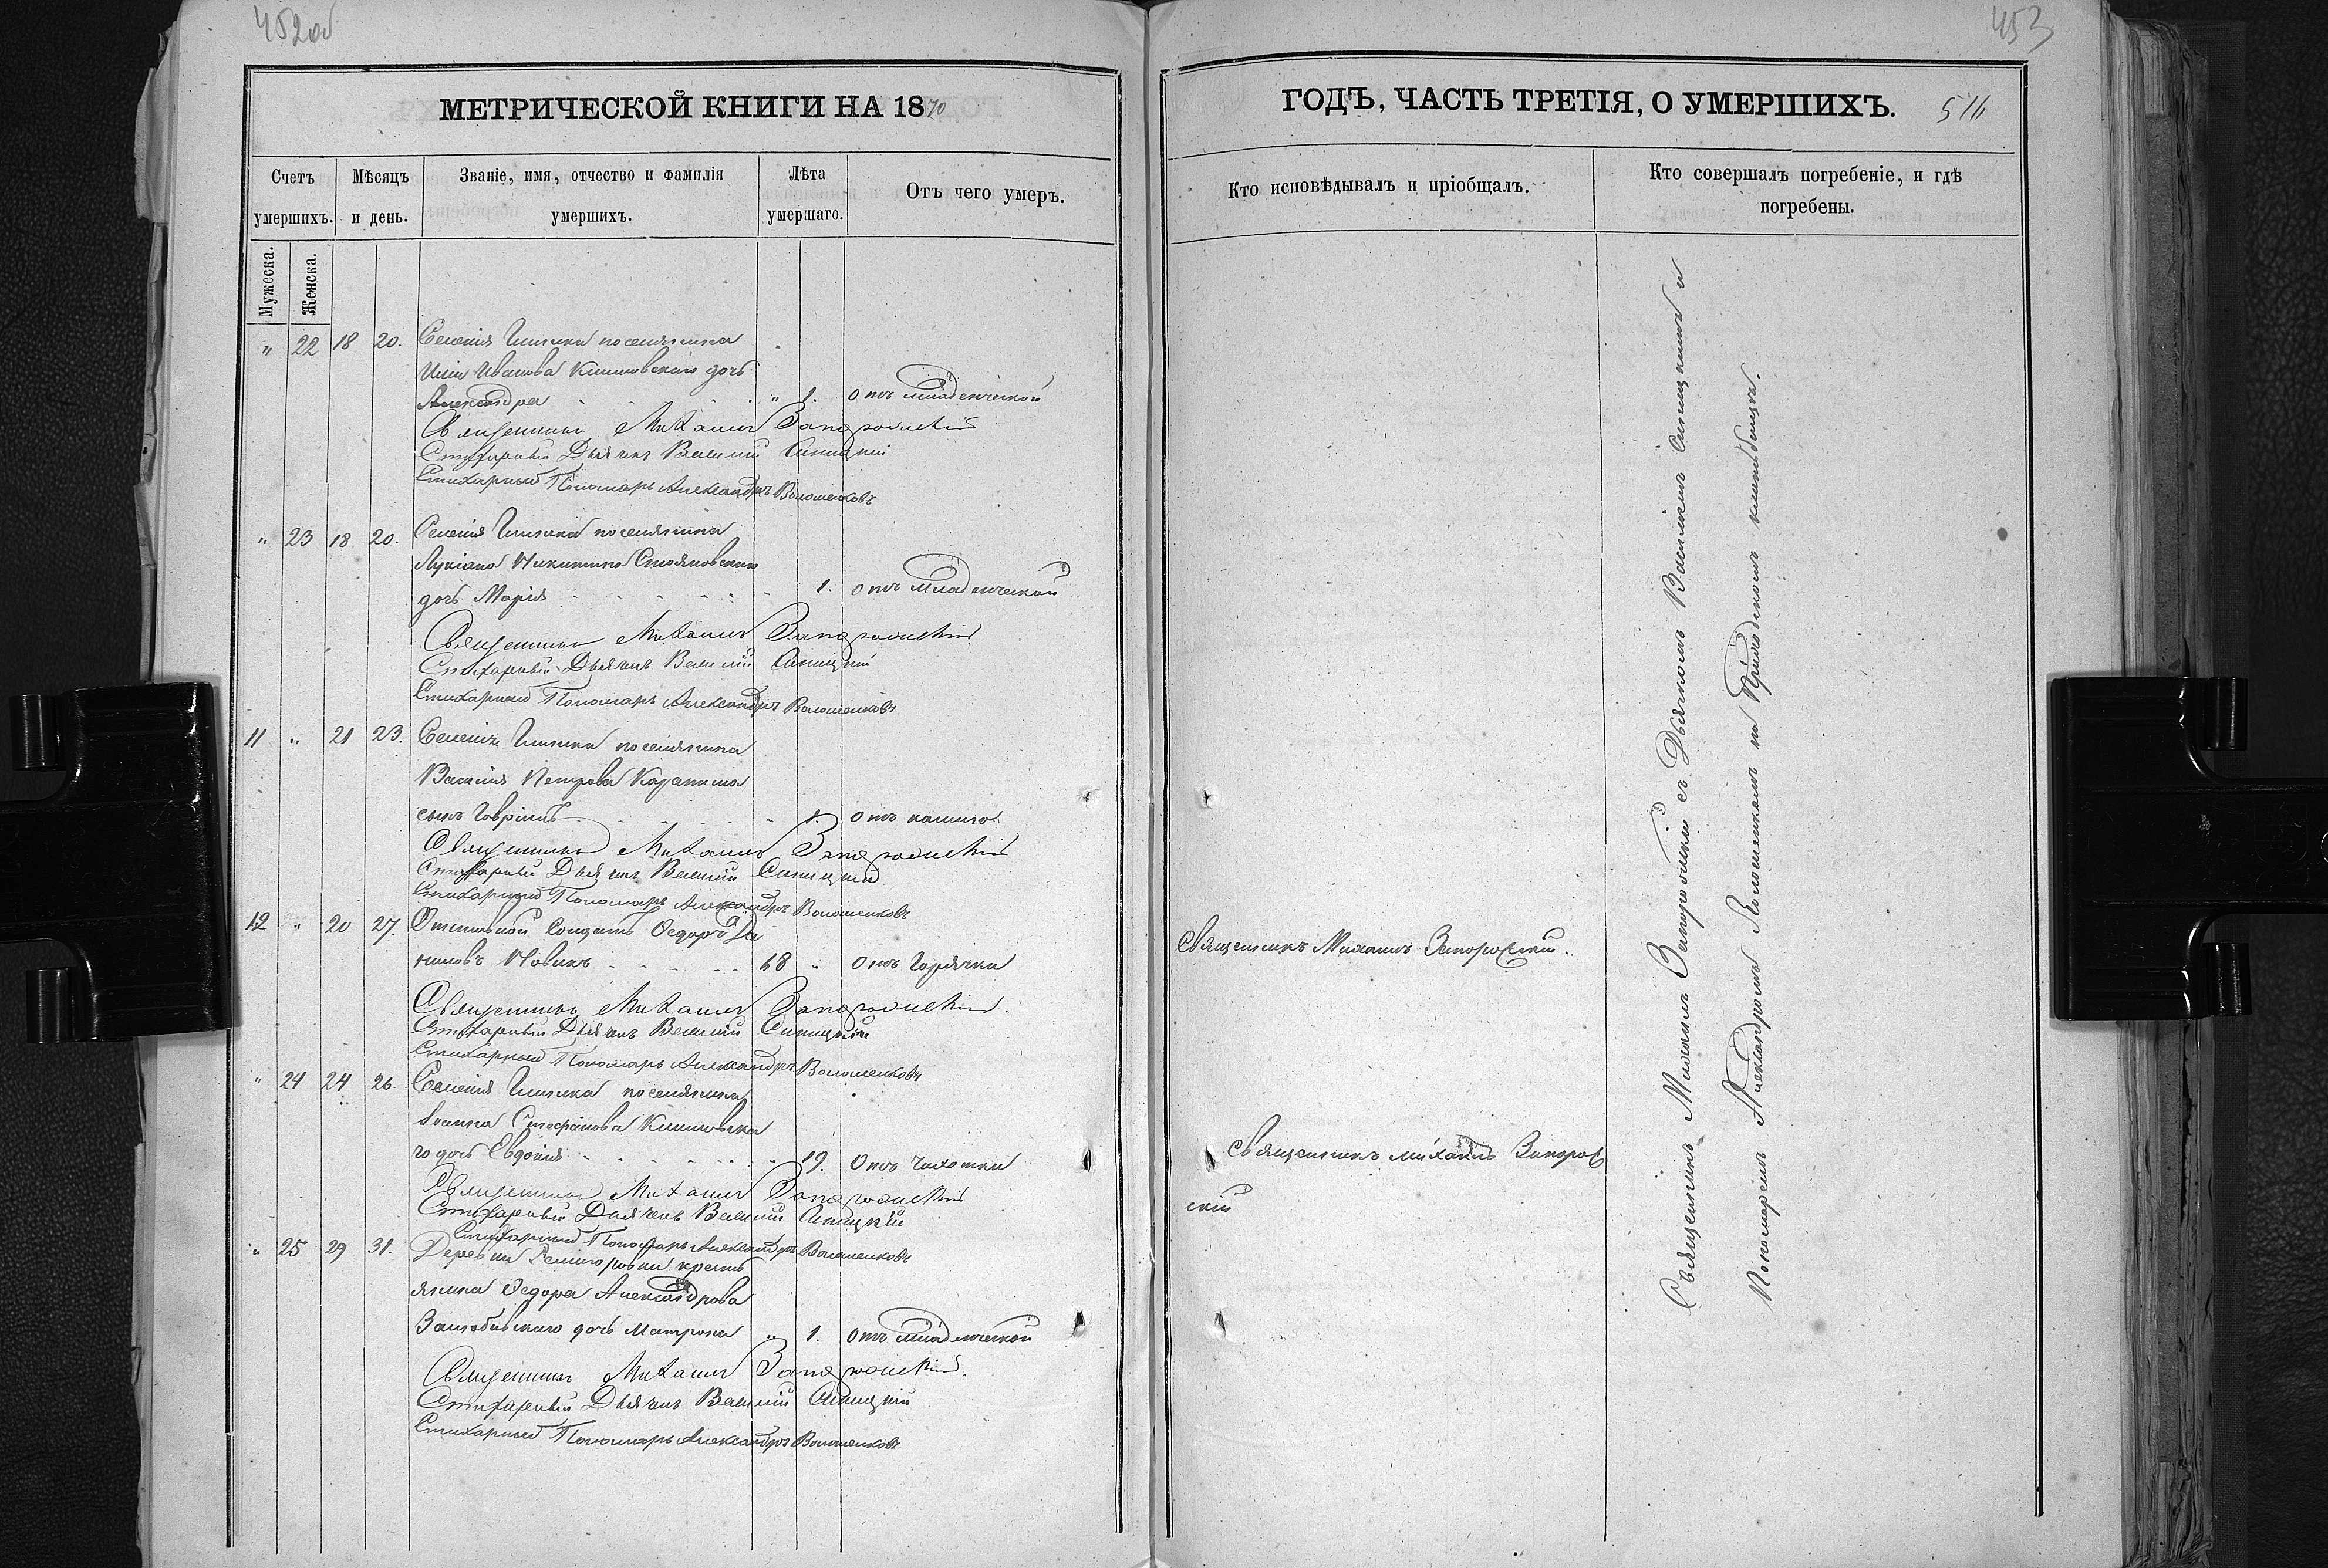 452об
453
МЕТРИЧЕСКОЙ КНИГИ НА 1870
ГОДЪ, ЧАСТЬ ТРЕТІЯ, О УМЕРШИХЪ. 516
Счетъ умершихъ.
Мѣсяцъ и день.
Званіе, имя, отчество и фамилія умершихъ.
Лѣта умершаго.
Отъ чего умеръ.
Кто исповѣдывалъ и пріобщалъ.
Кто совершалъ погребеніе, и гдѣ погребены.
Мужеска.
Женска.
" 22 18 20. Селенія поселянина
Иванова дочь
Александра " 1. отъ младенческой
Священникъ Михаилъ Запорожскій
Стихарный Дьячекъ Василій Синицкій
Стихарный Пономарь Александръ Волошенковъ
" 23 18 20. Селенія поселянина
Лукіана Никитина Стояновскаго
дочь Марія 1. отъ младенческой
Священникъ Михаилъ Запорожскій
Стихарный Дьячекъ Василій Синицкій
Стихарный Пономарь Александръ Волошенковъ
11 " 21 23. Селенія поселянина
Василія Петрова
сынъ Гавріилъ 1. отъ кашля
Священникъ Михаилъ Запорожскій
Стихарный Дьячекъ Василій Синицкій
Стихарный Пономарь Александръ Волошенковъ
12 " 20 27. Отставной Солдатъ Ѳедоръ Да
ниловъ Новикъ 68 " Отъ Горячки
Священникъ Михаилъ Запорожскій.
Священникъ Михаилъ Запорожскій.
Стихарный Дьячекъ Василій Синицкій
Стихарный Пономарь Александръ Волошенковъ
" 24 24 26. Селенія поселянина
Іоанна Стефанова
го дочь Евдокія 19. Отъ Чахотки
Священникъ Михаилъ Запорож
скій
Священникъ Михаилъ Запорожскій
Стихарный Дьячекъ Василій Синицкій
Стихарный Пономарь Александръ Волошенковъ
" 25 29 31. Деревни кресть
янина Ѳедора Александрова
дочь Матрона " 1. отъ младенческой
Священникъ Михаилъ Запорожскій.
Стихарный Дьячекъ Василій Синицкій
Стихарный Пономарь Александръ Волошенковъ
Священникъ Михаилъ Запорожскій съ Дьячкомъ Василіемъ Синицкимъ и
Пономаремъ Александромъ Волошенкомъ на Приходскомъ кладбищѣ.